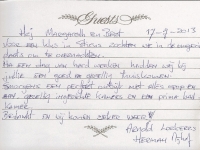 Guests
Hoi Margareth en Bert 17-9-2013
Voor een klus in Stiens zochten we in de omgeving
onderdak om te overnachten.
Na een dag van hard werken hadden wij bij
jullie een goed en gezellig
een perfect ontbijt met alles erop en
aan, gezellig ingerichte kamers en een prima bad
kamer.
Bedankt en wij komen zeker weer
Arnold
Herman